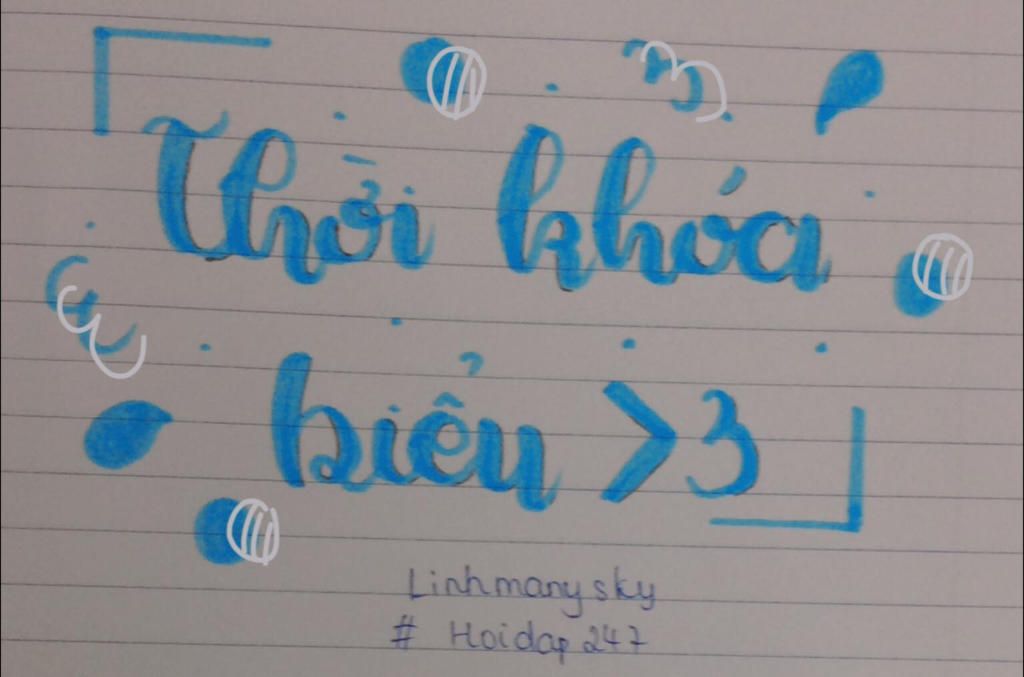 Thời khóa
biểu >3
Linhmany sky
# Hoidap 247